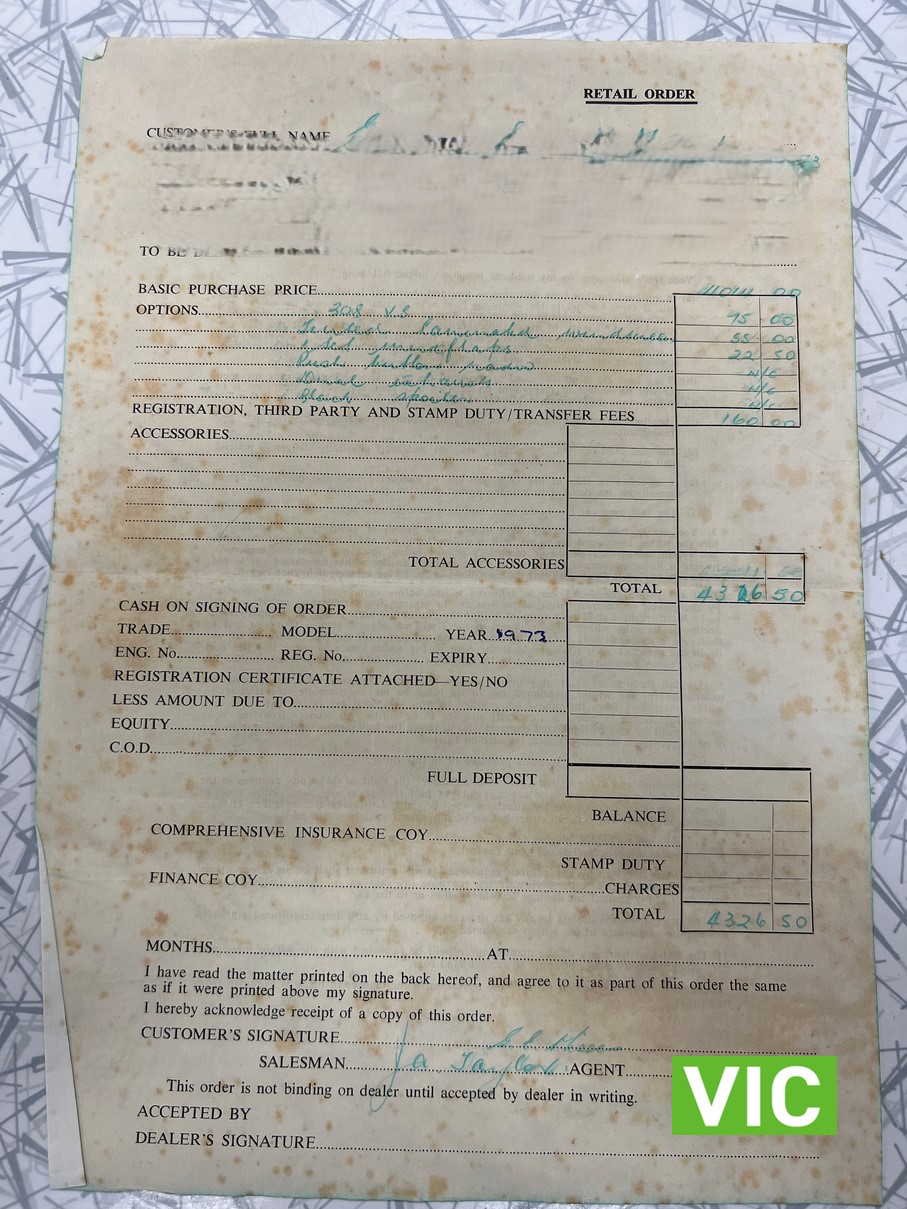 RETAIL ORDER
CUSTOMER'S FULL NAME
TO BE
BASIC PURCHASE PRICE 4014 00
OPTIONS 308 V.8 75 00
Tinted laminated windscreen 55 00
mudflaps 22 50
Push button N/C
Dual exhausts N/C
Black N/C
REGISTRATION, THIRD PARTY AND STAMP DUTY/TRANSFER FEES 160 00
ACCESSORIES
TOTAL ACCESSORIES
TOTAL 4326 50
CASH ON SIGNING OF ORDER
TRADE MODEL YEAR 1973
ENG. No. REG. No. EXPIRY
REGISTRATION CERTIFICATE ATTACHED—YES/NO
LESS AMOUNT DUE TO
EQUITY
C.O.D.
FULL DEPOSIT
BALANCE
COMPREHENSIVE INSURANCE COY
STAMP DUTY
FINANCE COY CHARGES
TOTAL 4326 50
MONTHS AT
I have read the matter printed on the back hereof, and agree to it as part of this order the same
as if it were printed above my signature.
I hereby acknowledge receipt of a copy of this order.
CUSTOMER'S SIGNATURE
SALESMAN J A Taylor AGENT
VIC
This order is not binding on dealer until accepted by dealer in writing.
ACCEPTED BY
DEALER'S SIGNATURE